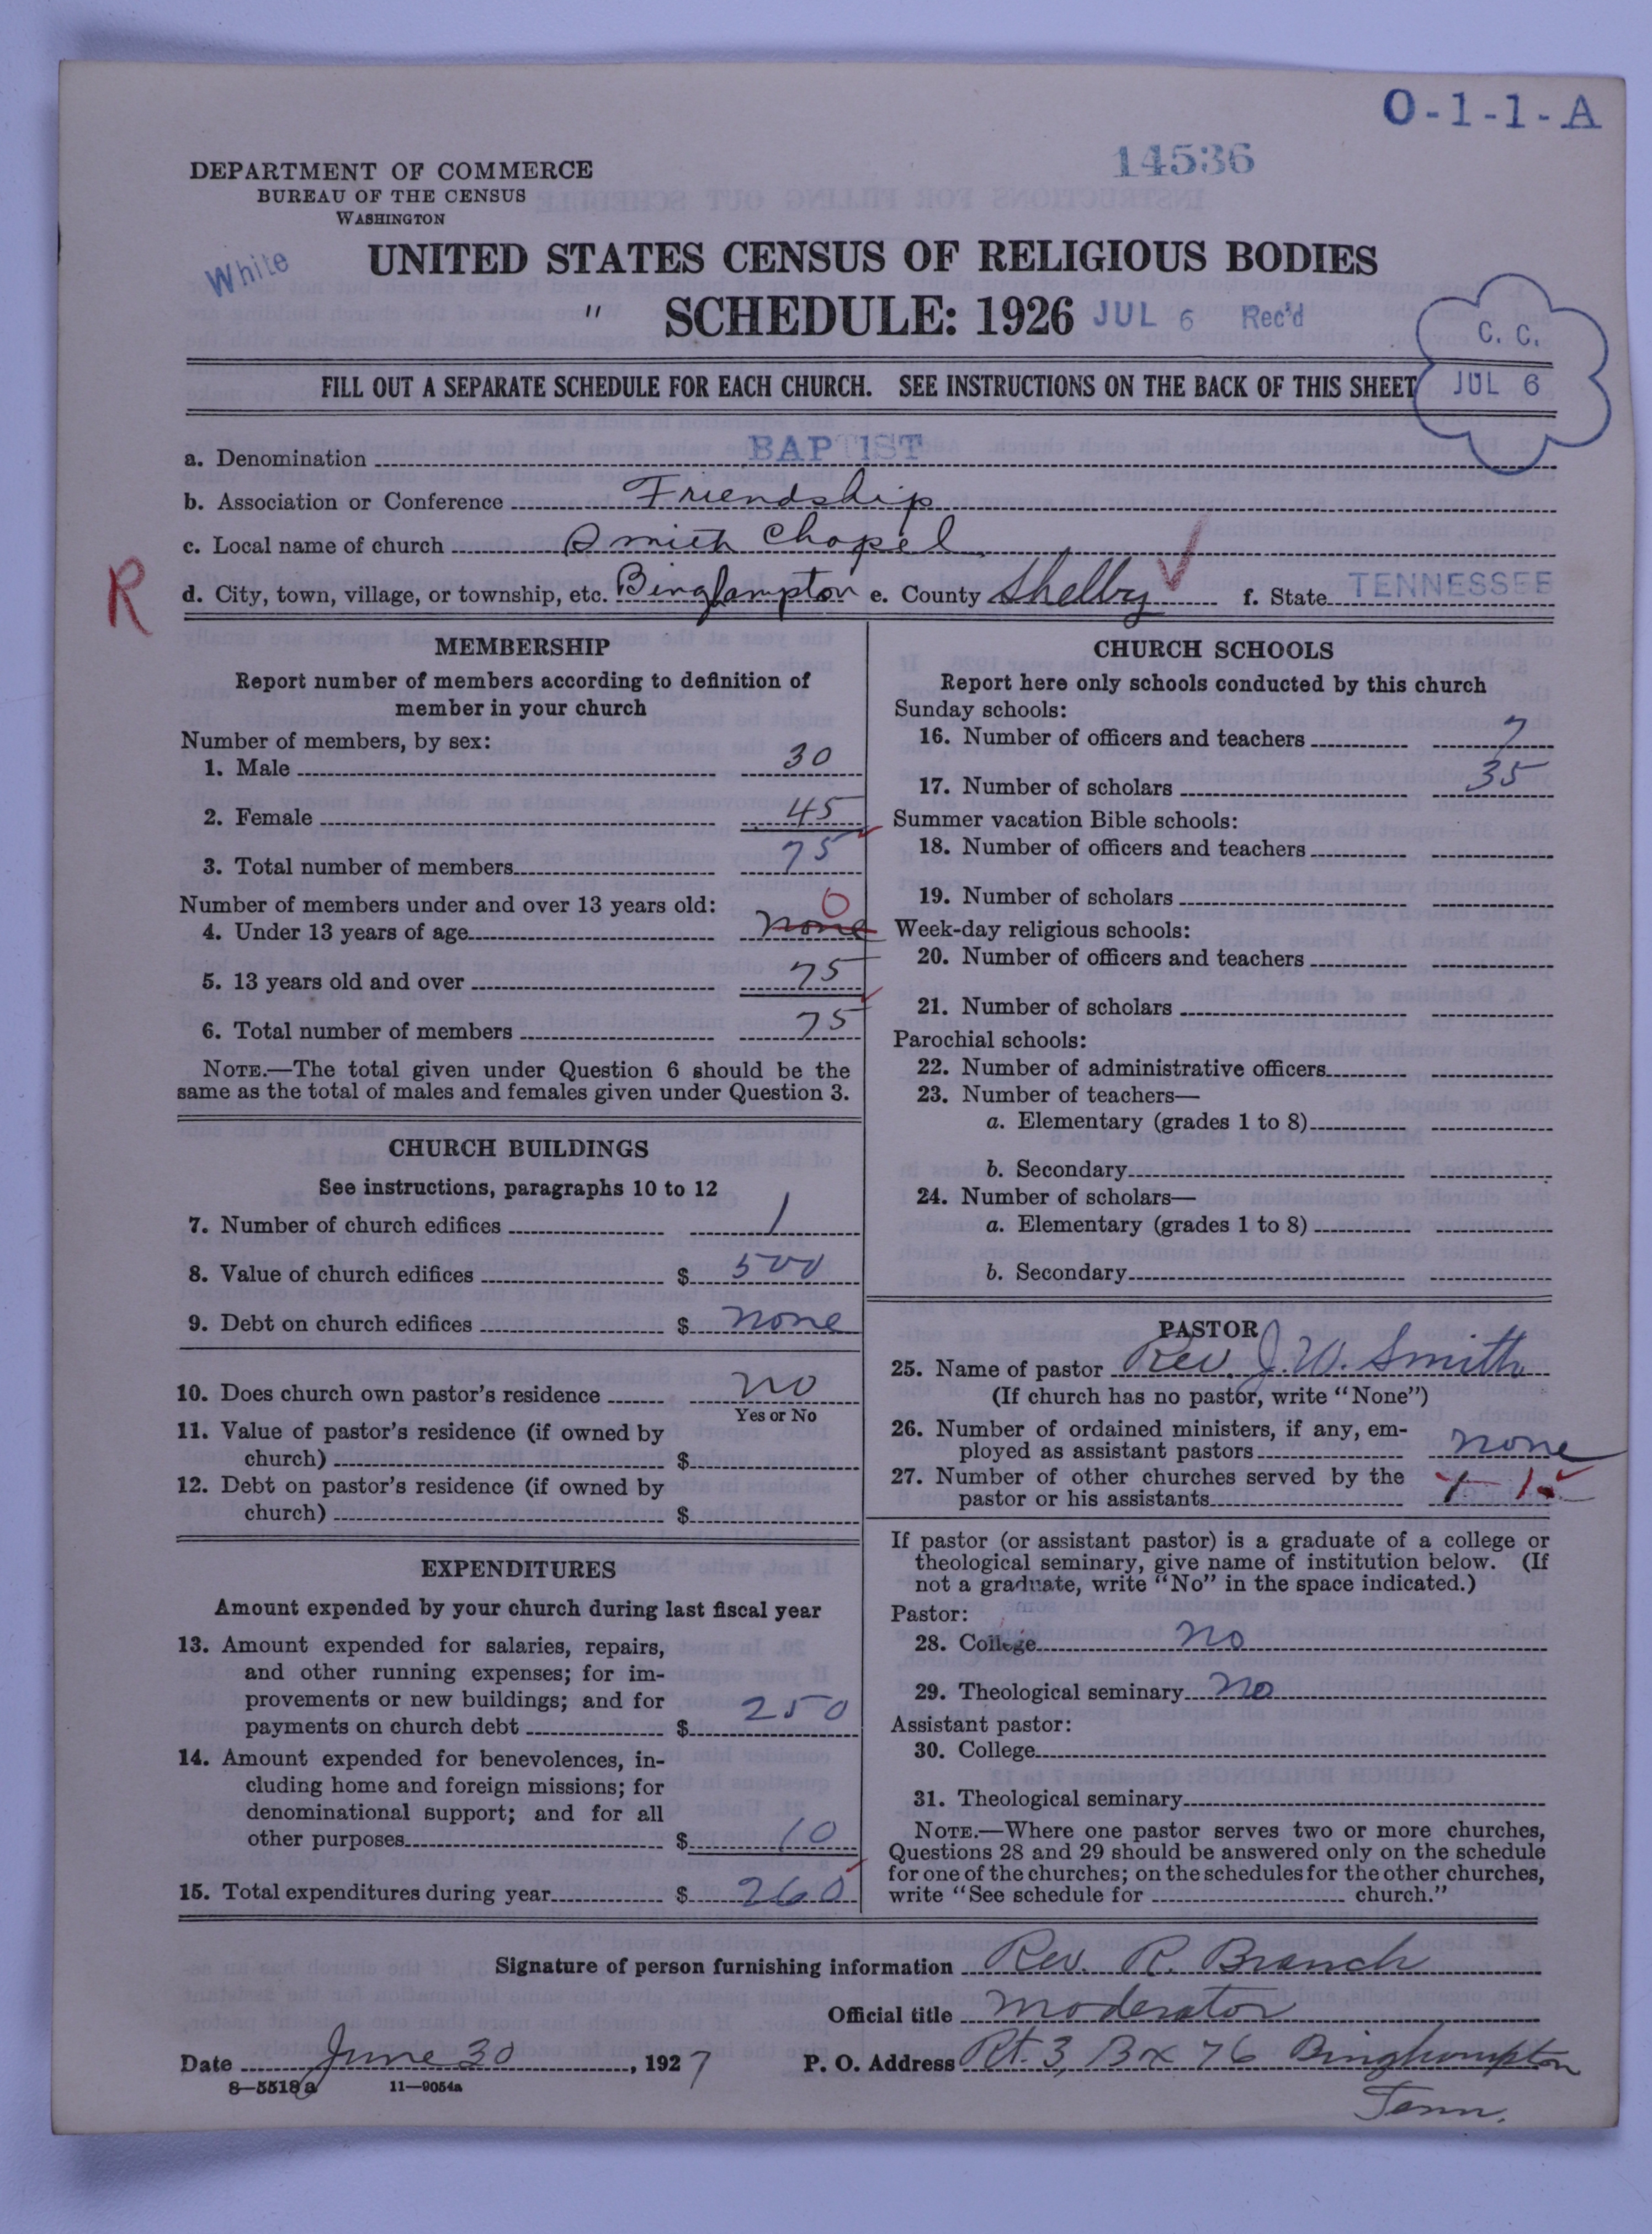 O-1-1-A
14536
DEPARTMENT OF COMMERCE
BUREAU OF THE CENSUS
WASHINGTON
White
UNITED STATES CENSUS OF RELIGIOUS BODIES
" SCHEDULE: 1926 JUL 6 Rec'd
C. C.
JUL 6
FILL OUT A SEPARATE SCHEDULE FOR EACH CHURCH. SEE INSTRUCTIONS ON THE BACK OF THIS SHEET
a. Denomination BAPTIST
b. Association or Conference Friendship
c. Local name of church Smith Chapel
R
d. City, town, village, or township, etc. Binghampton e. County Shelby f. State TENNESSEE
MEMBERSHIP
Report number of members according to definition of
member in your church
Number of members, by sex:
1. Male 30
2. Female 45
3. Total number of members 75
Number of members under and over 13 years old:
0
4. Under 13 years of age none
5. 13 years old and over 75
6. Total number of members 75
NOTE.—The total given under Question 6 should be the
same as the total of males and females given under Question 3.
CHURCH BUILDINGS
See instructions, paragraphs 10 to 12
7. Number of church edifices 1
8. Value of church edifices $ 500
9. Debt on church edifices $ none
10. Does church own pastor's residence no
Yes or No
11. Value of pastor's residence (if owned by
church) $
12. Debt on pastor's residence (if owned by
church) $
EXPENDITURES
Amount expended by your church during last fiscal year
13. Amount expended for salaries, repairs,
and other running expenses; for im-
provements or new buildings; and for
payments on church debt $ 250
14. Amount expended for benevolences, in-
cluding home and foreign missions; for
denominational support; and for all
other purposes $ 10
15. Total expenditures during year $ 260
CHURCH SCHOOLS
Report here only schools conducted by this church
Sunday schools:
16. Number of officers and teachers 7
17. Number of scholars 35
Summer vacation Bible schools:
18. Number of officers and teachers
19. Number of scholars
Week-day religious schools:
20. Number of officers and teachers
21. Number of scholars
Parochial schools:
22. Number of administrative officers
23. Number of teachers—
a. Elementary (grades 1 to 8)
b. Secondary
24. Number of scholars—
a. Elementary (grades 1 to 8)
b. Secondary
PASTOR
25. Name of pastor Rev. J. W. Smith
(If church has no pastor, write "None")
26. Number of ordained ministers, if any, em-
ployed as assistant pastors none
27. Number of other churches served by the
pastor or his assistants 1
If pastor (or assistant pastor) is a graduate of a college or
theological seminary, give name of institution below. (If
not a graduate, write "No" in the space indicated.)
Pastor:
28. College no
29. Theological seminary no
Assistant pastor:
30. College
31. Theological seminary
NOTE.—Where one pastor serves two or more churches,
Questions 28 and 29 should be answered only on the schedule
for one of the churches; on the schedules for the other churches,
write "See schedule for church."
Signature of person furnishing information Rev. R. Branch
Official title moderator
Date June 30, 1927 P. O. Address Rt. 3, Box 76 Binghampton
Tenn.
8—5518a 11—9054a